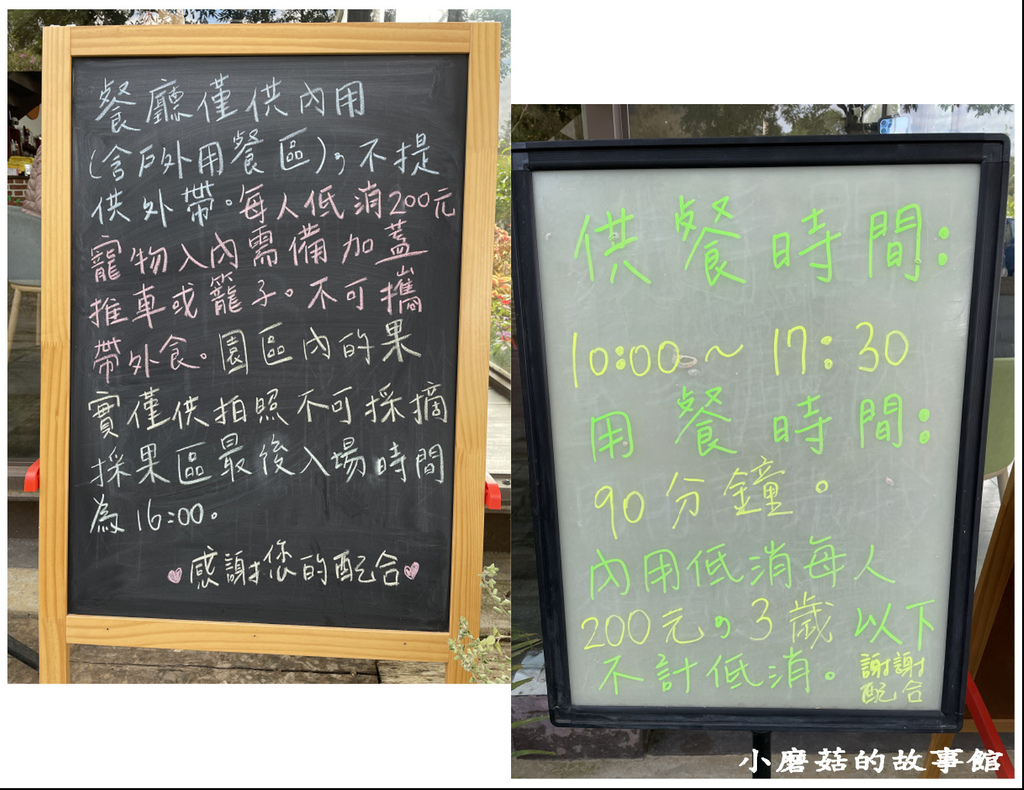 餐廳僅供內用
(含戶外用餐區)，不提
供外帶。每人低消200元
寵物入內需備加蓋
推車或籠子。不可攜
帶外食。園區內的果
實僅供拍照不可採摘
採果區最後入場時間
為16:00。
感謝您的配合
供餐時間:
10:00~17:30
用餐時間:
90分鐘。
內用低消每人
200元，3歲以下
不計低消。謝謝
配合
小磨菇的故事館